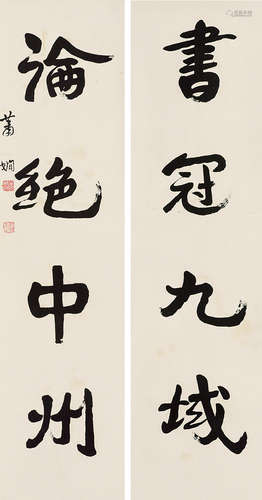 書冠九域
論絶中州
蕭嫻